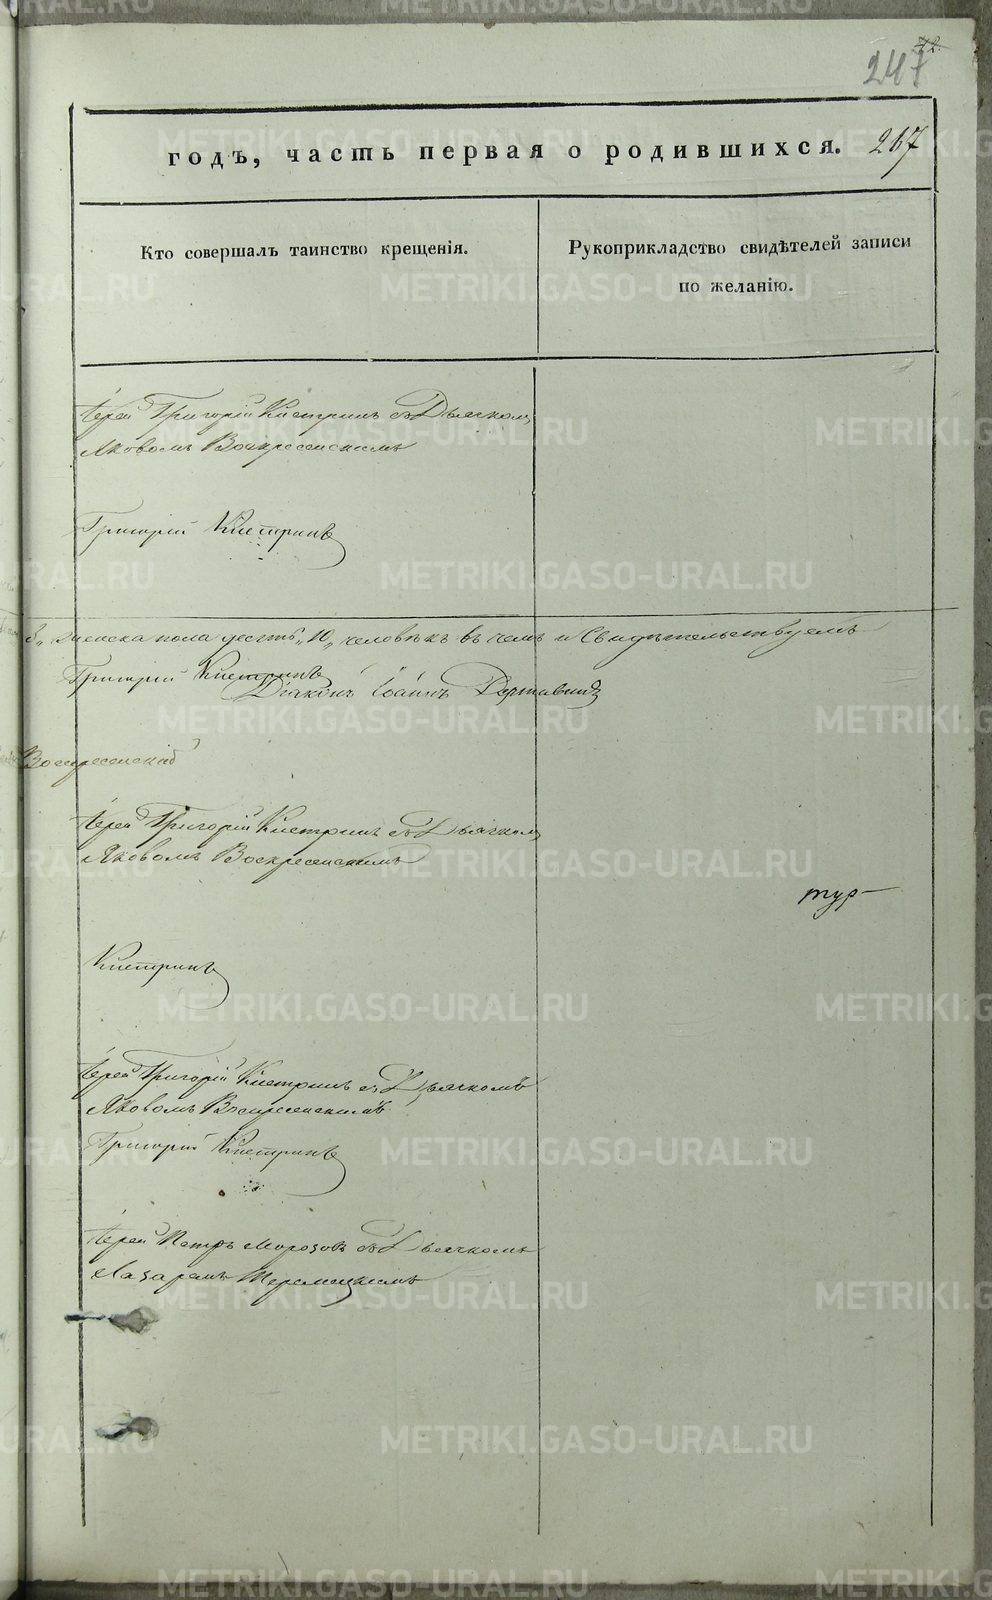 42.
247
годъ, часть первая о родившихся. 267
Кто совершалъ таинство крещенія.
Рукоприкладство свидѣтелей записи
по желанію.
Іерей Григорій Кистринъ съ Дьячком
Яковомъ Воскресенскимъ
Григорій Кистринъ
женска пола десять „10„ человѣкъ въ чемъ и Свидѣтельствуемъ
Григорій Кистринъ
Діаконъ Іоаннъ
Воскресенскій
Іерей Григорій Кистринъ съ Дьячком
Яковомъ Воскресенскимъ
тур-
Кистринъ
Іерей Григорій Кистринъ съ Дьячкомъ
Яковомъ Воскресенскимъ
Григорій Кистринъ
Іерей Петръ Морозовъ съ Дьячкомъ
Лазаремъ
METRIKI.GASO-URAL.RU